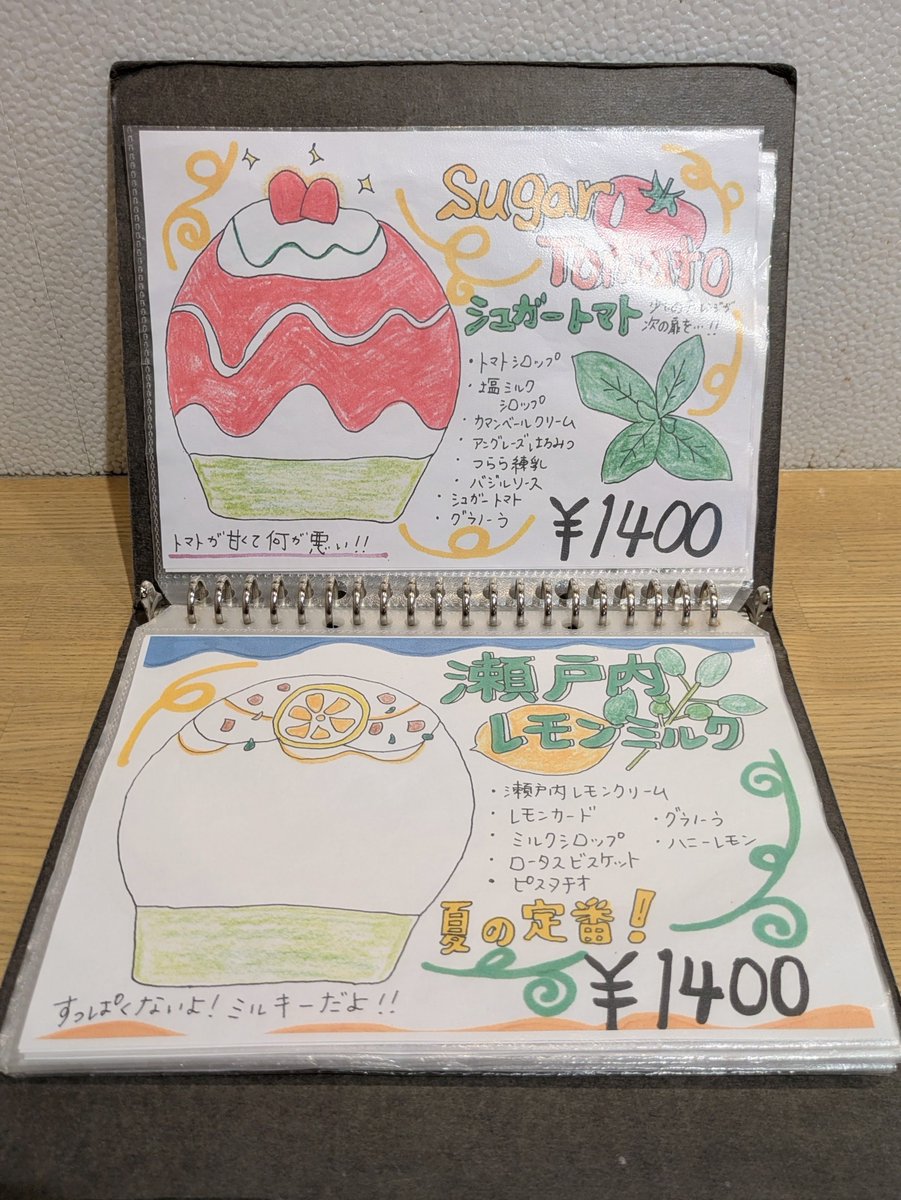 Sugar
Tomato
シュガートマト
少しの
次の扉を…!!
・トマトシロップ
・塩ミルク
シロップ
・カマンベールクリーム
・アングレーズはちみつ
・つらら練乳
・バジルソース
・シュガートマト
・グラノーラ
¥1400
トマトが甘くて何が悪い!!
瀬戸内
レモンミルク
・瀬戸内レモンクリーム
・レモンカード
・ミルクシロップ
・ロータスビスケット
・ピスタチオ
・グラノーラ
・ハニーレモン
夏の定番!
¥1400
すっぱくないよ!ミルキーだよ!!